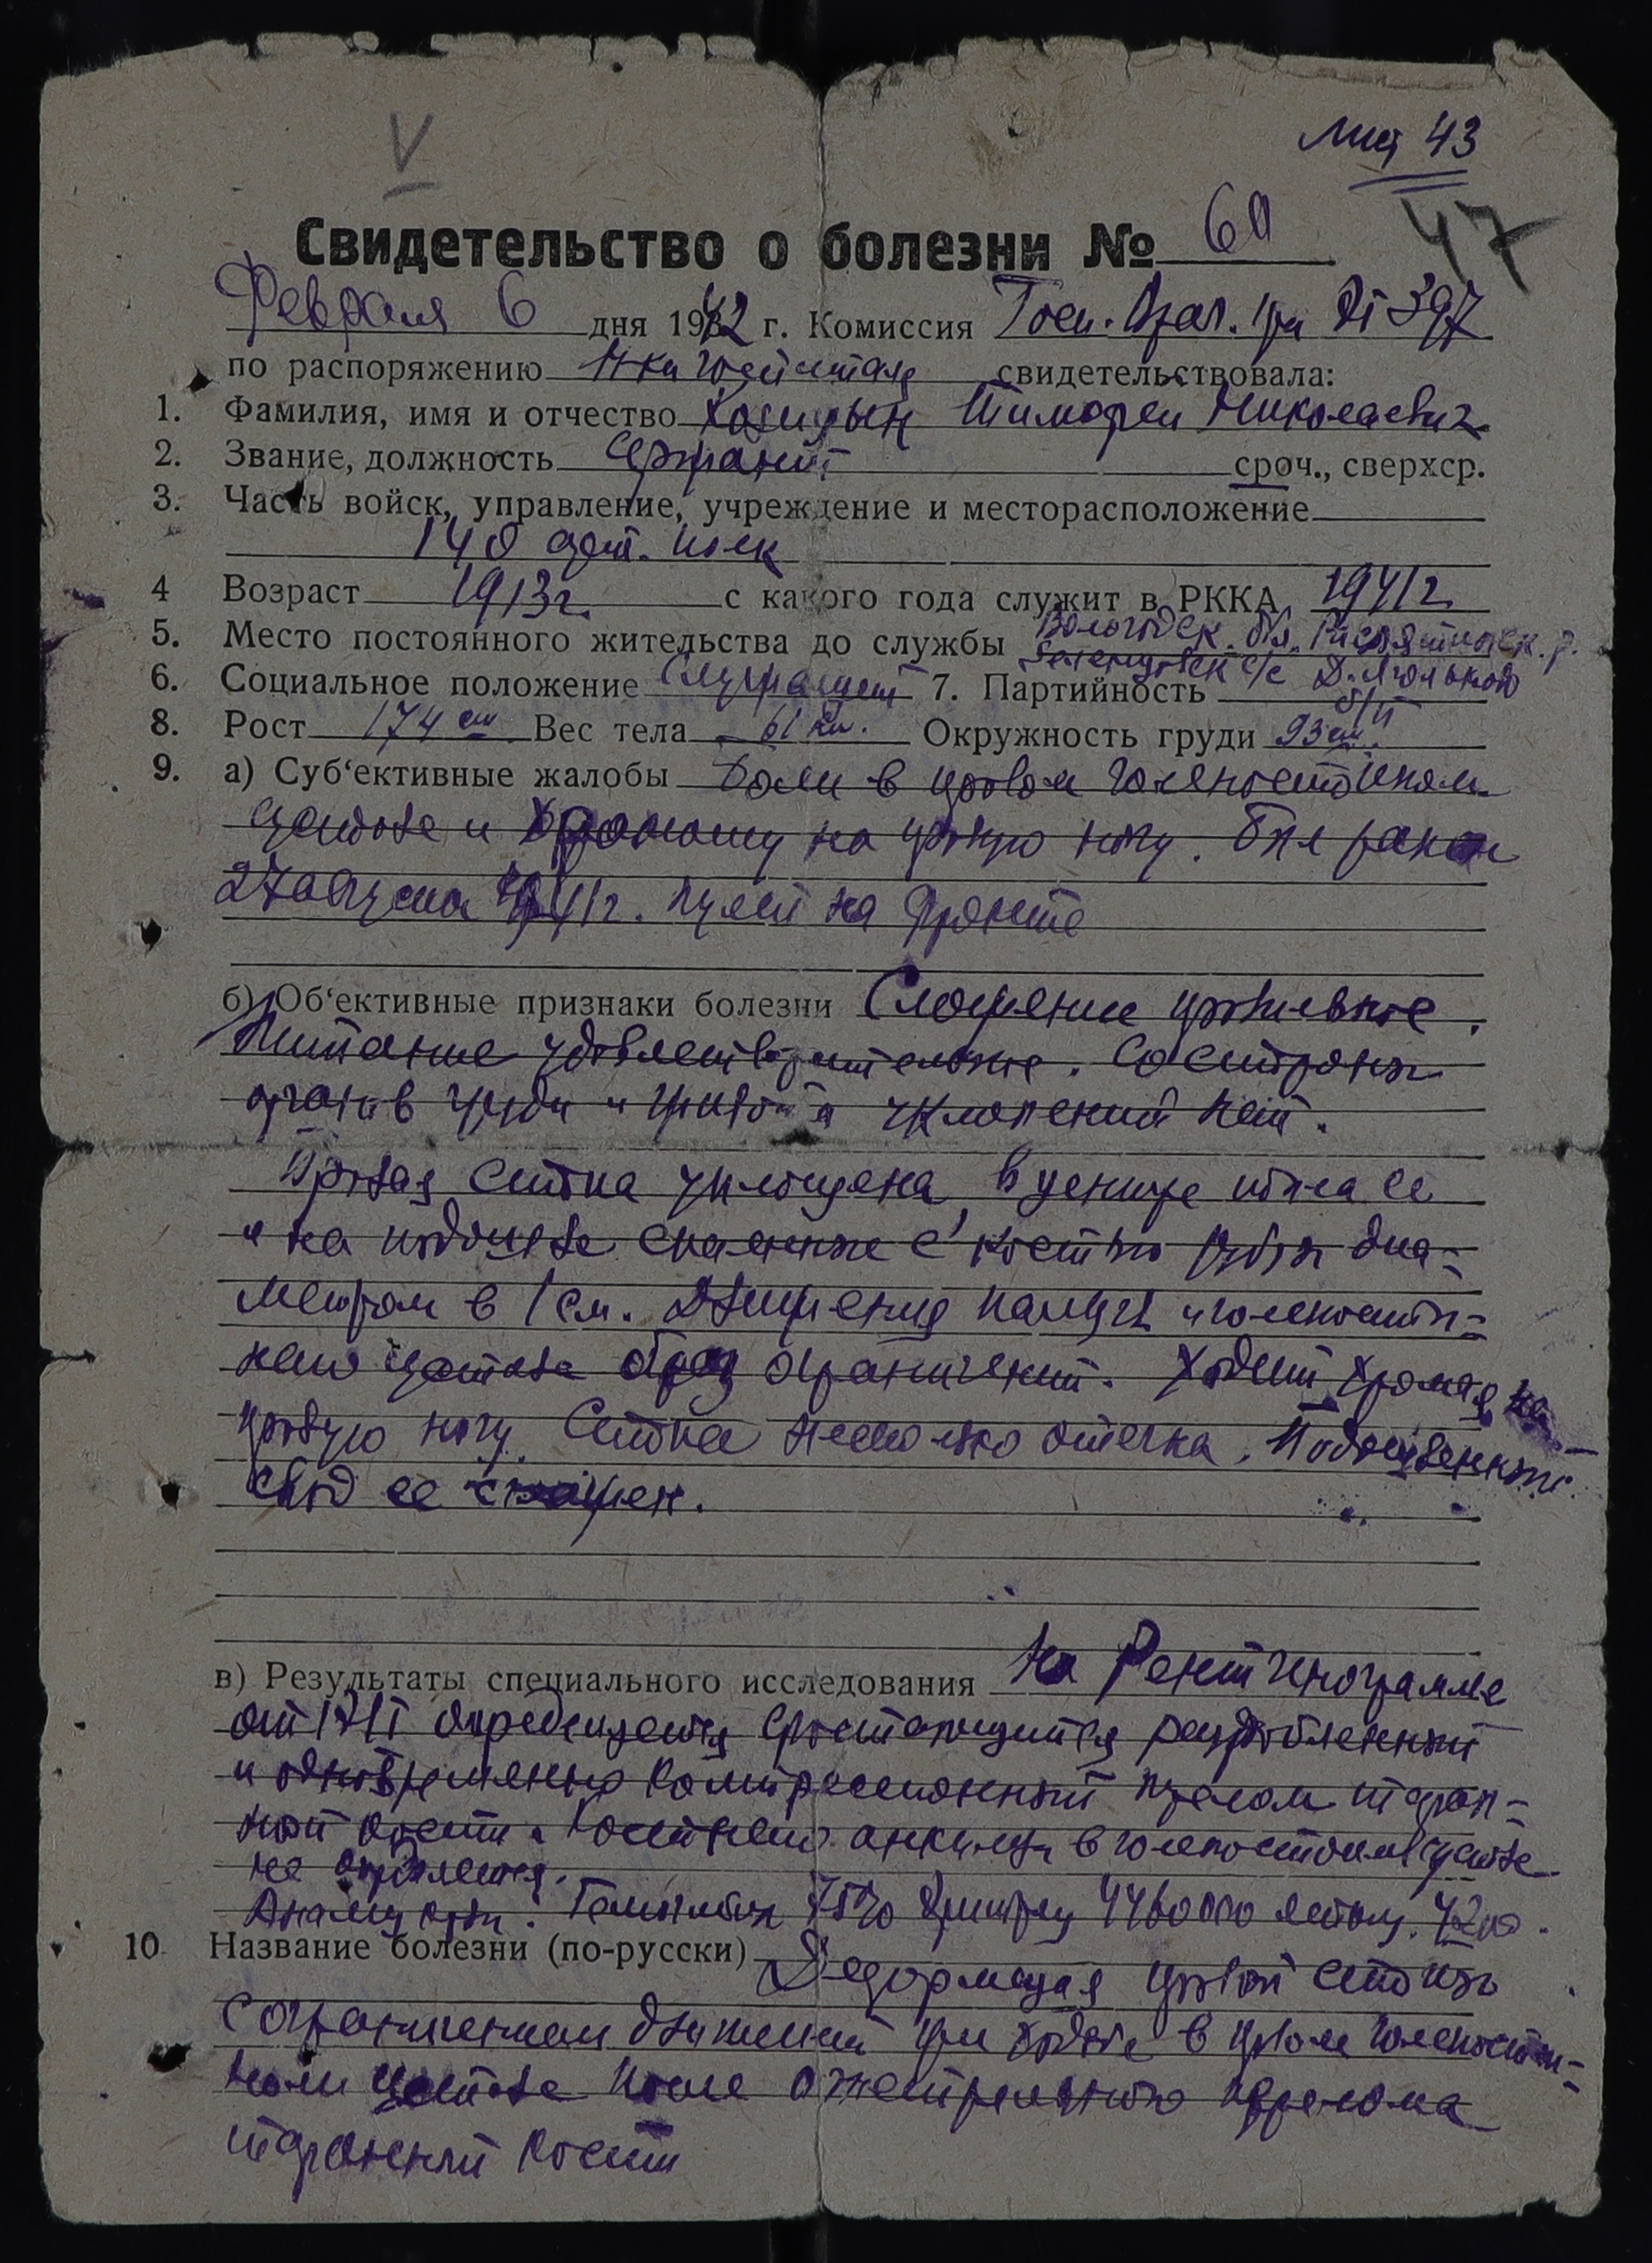 V
лич 43
47
Свидетельство о болезни № 60
Февраля 6 дня 1942 г. Комиссия Госп. Врач. при ЭГ 397
по распоряжению Н-ка госпиталя свидетельствовала:
1. Фамилия, имя и отчество Тимофей Николаевич
2. Звание, должность Сержант сроч., сверхср.
3. Часть войск, управление, учреждение и месторасположение
140 арт. полк
4 Возраст 1913 г. с какого года служит в РККА 1941 г.
5. Место постоянного жительства до службы Вологодск. обл.
с/с Д.
6. Социальное положение Служащий 7. Партийность б/п
8. Рост 174 см Вес тела 61 кг. Окружность груди 93 см.
9. а) Суб‘ективные жалобы Боли в правом голеностопном
суставе и хромоту на правую ногу. Был ранен
27 августа 1941 г. пулей на фронте
б) Об‘ективные признаки болезни Сложение правильное.
Питание удовлетворительное. Со стороны
органов груди и живота уклонений нет.
Правая стопа уплощена, в центре тыла ее
и на подошве спаянные с костью рубцы диа-
метром в 1 см. Движения пальцев и голеностоп-
ного сустава ограничены. Ходит хромая на
правую ногу. Стопа несколько отечна. Подошвенный
свод ее сглажен.
в) Результаты специального исследования На Рентгенограмме
от 17/I определяется срастающийся раздробленный
и одновременно компрессионный перелом таран-
ной кости. Костного анкилоза в голеностопном суставе
не определяется.
Анализ крови: Гемоглобин 75% Эритроц 4460000 лейкоц. 4200.
10. Название болезни (по-русски) Деформация правой стопы
с ограничением движений при ходьбе в правом голеностоп-
ном суставе после огнестрельного перелома
таранной кости